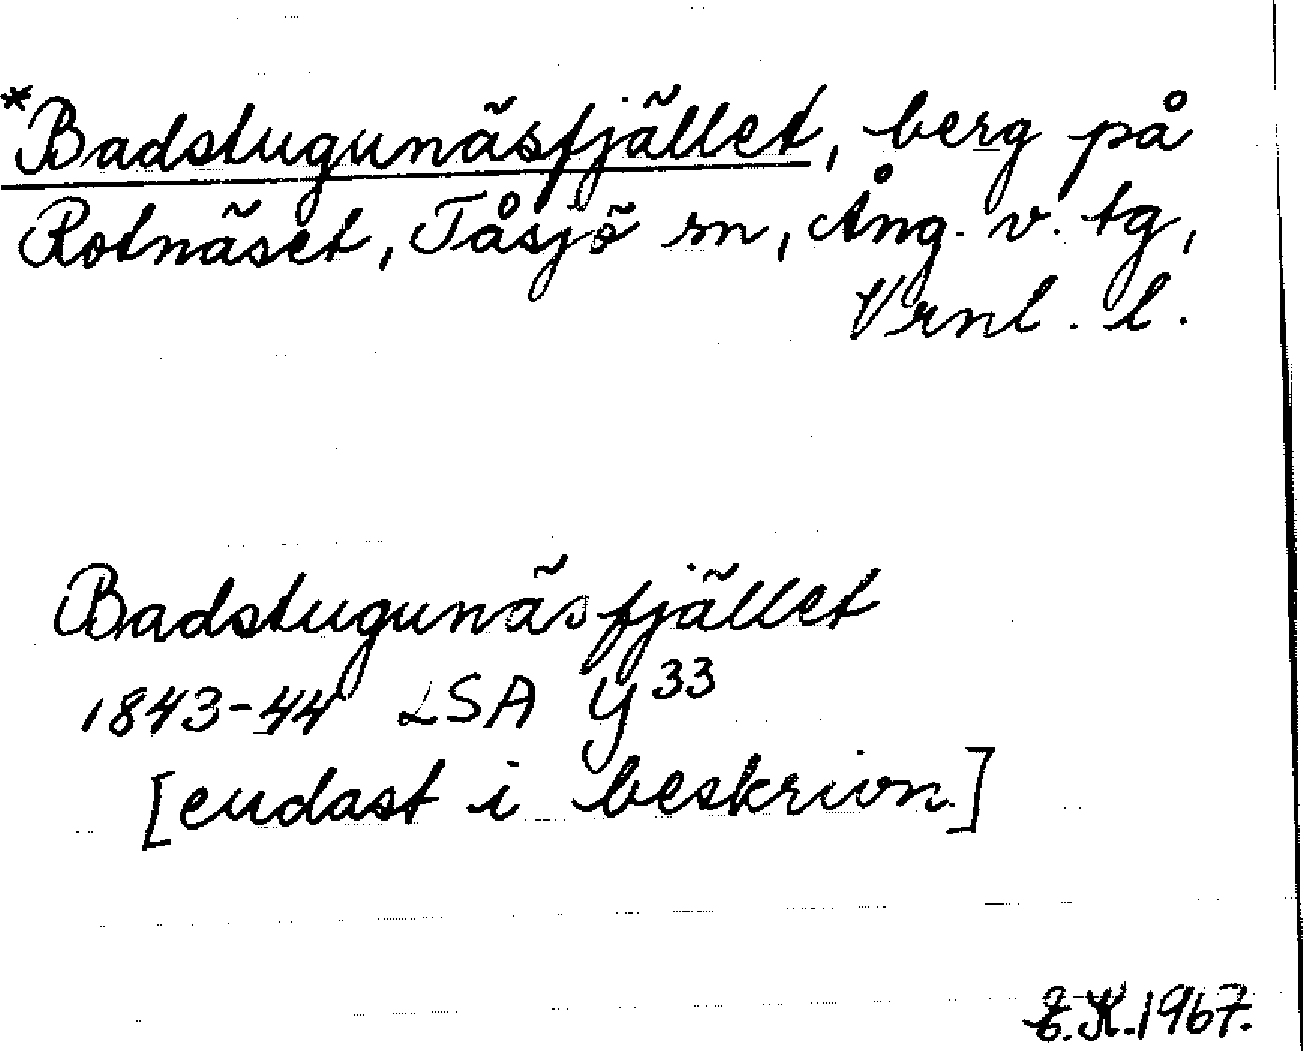 *Badstugunäsfjället, berg på
Rotnäset, Tåsjö sn, Ång. v. tg,
Vrnl. l.
Badstugunäsfjället
1843-44 LSA Y33
[endast i beskrivn.]
E.K.1967.